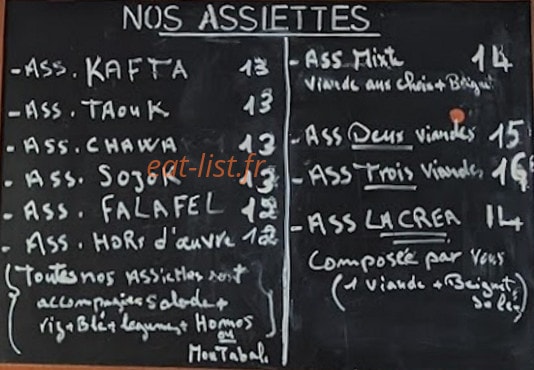 NOS ASSIETTES
- ASS. KAFTA 13
- ASS. TAOUK 13
- ASS. CHAWA 13
- ASS. SOJOK 13
- ASS. FALAFEL 12
- ASS. HORS d'œuvre 12
(Toutes nos Assiettes sont
accompagnées Salade +
riz + Blé + legumes + Homos
ou
MouTabal)
- ASS Mixte 14
Viande aus choix + Beignet
- ASS Deux viandes 15
- ASS Trois Viandes 16
- ASS LACREA 14
Composée par Vous
(1 viande + Beignet
Salé)
eat-list.fr